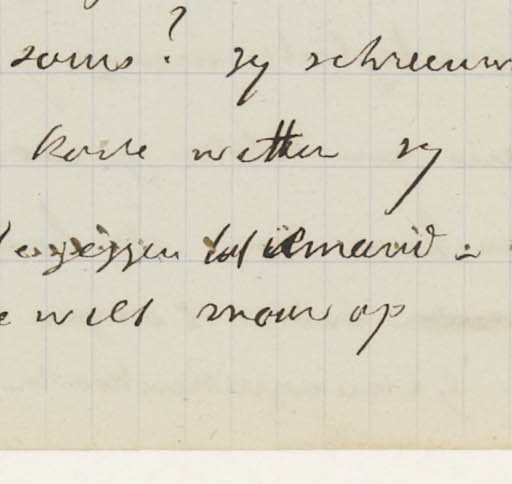 soms? zy schreeuw
korte wetten zy
zeggen dat iemand
e wilt maar op